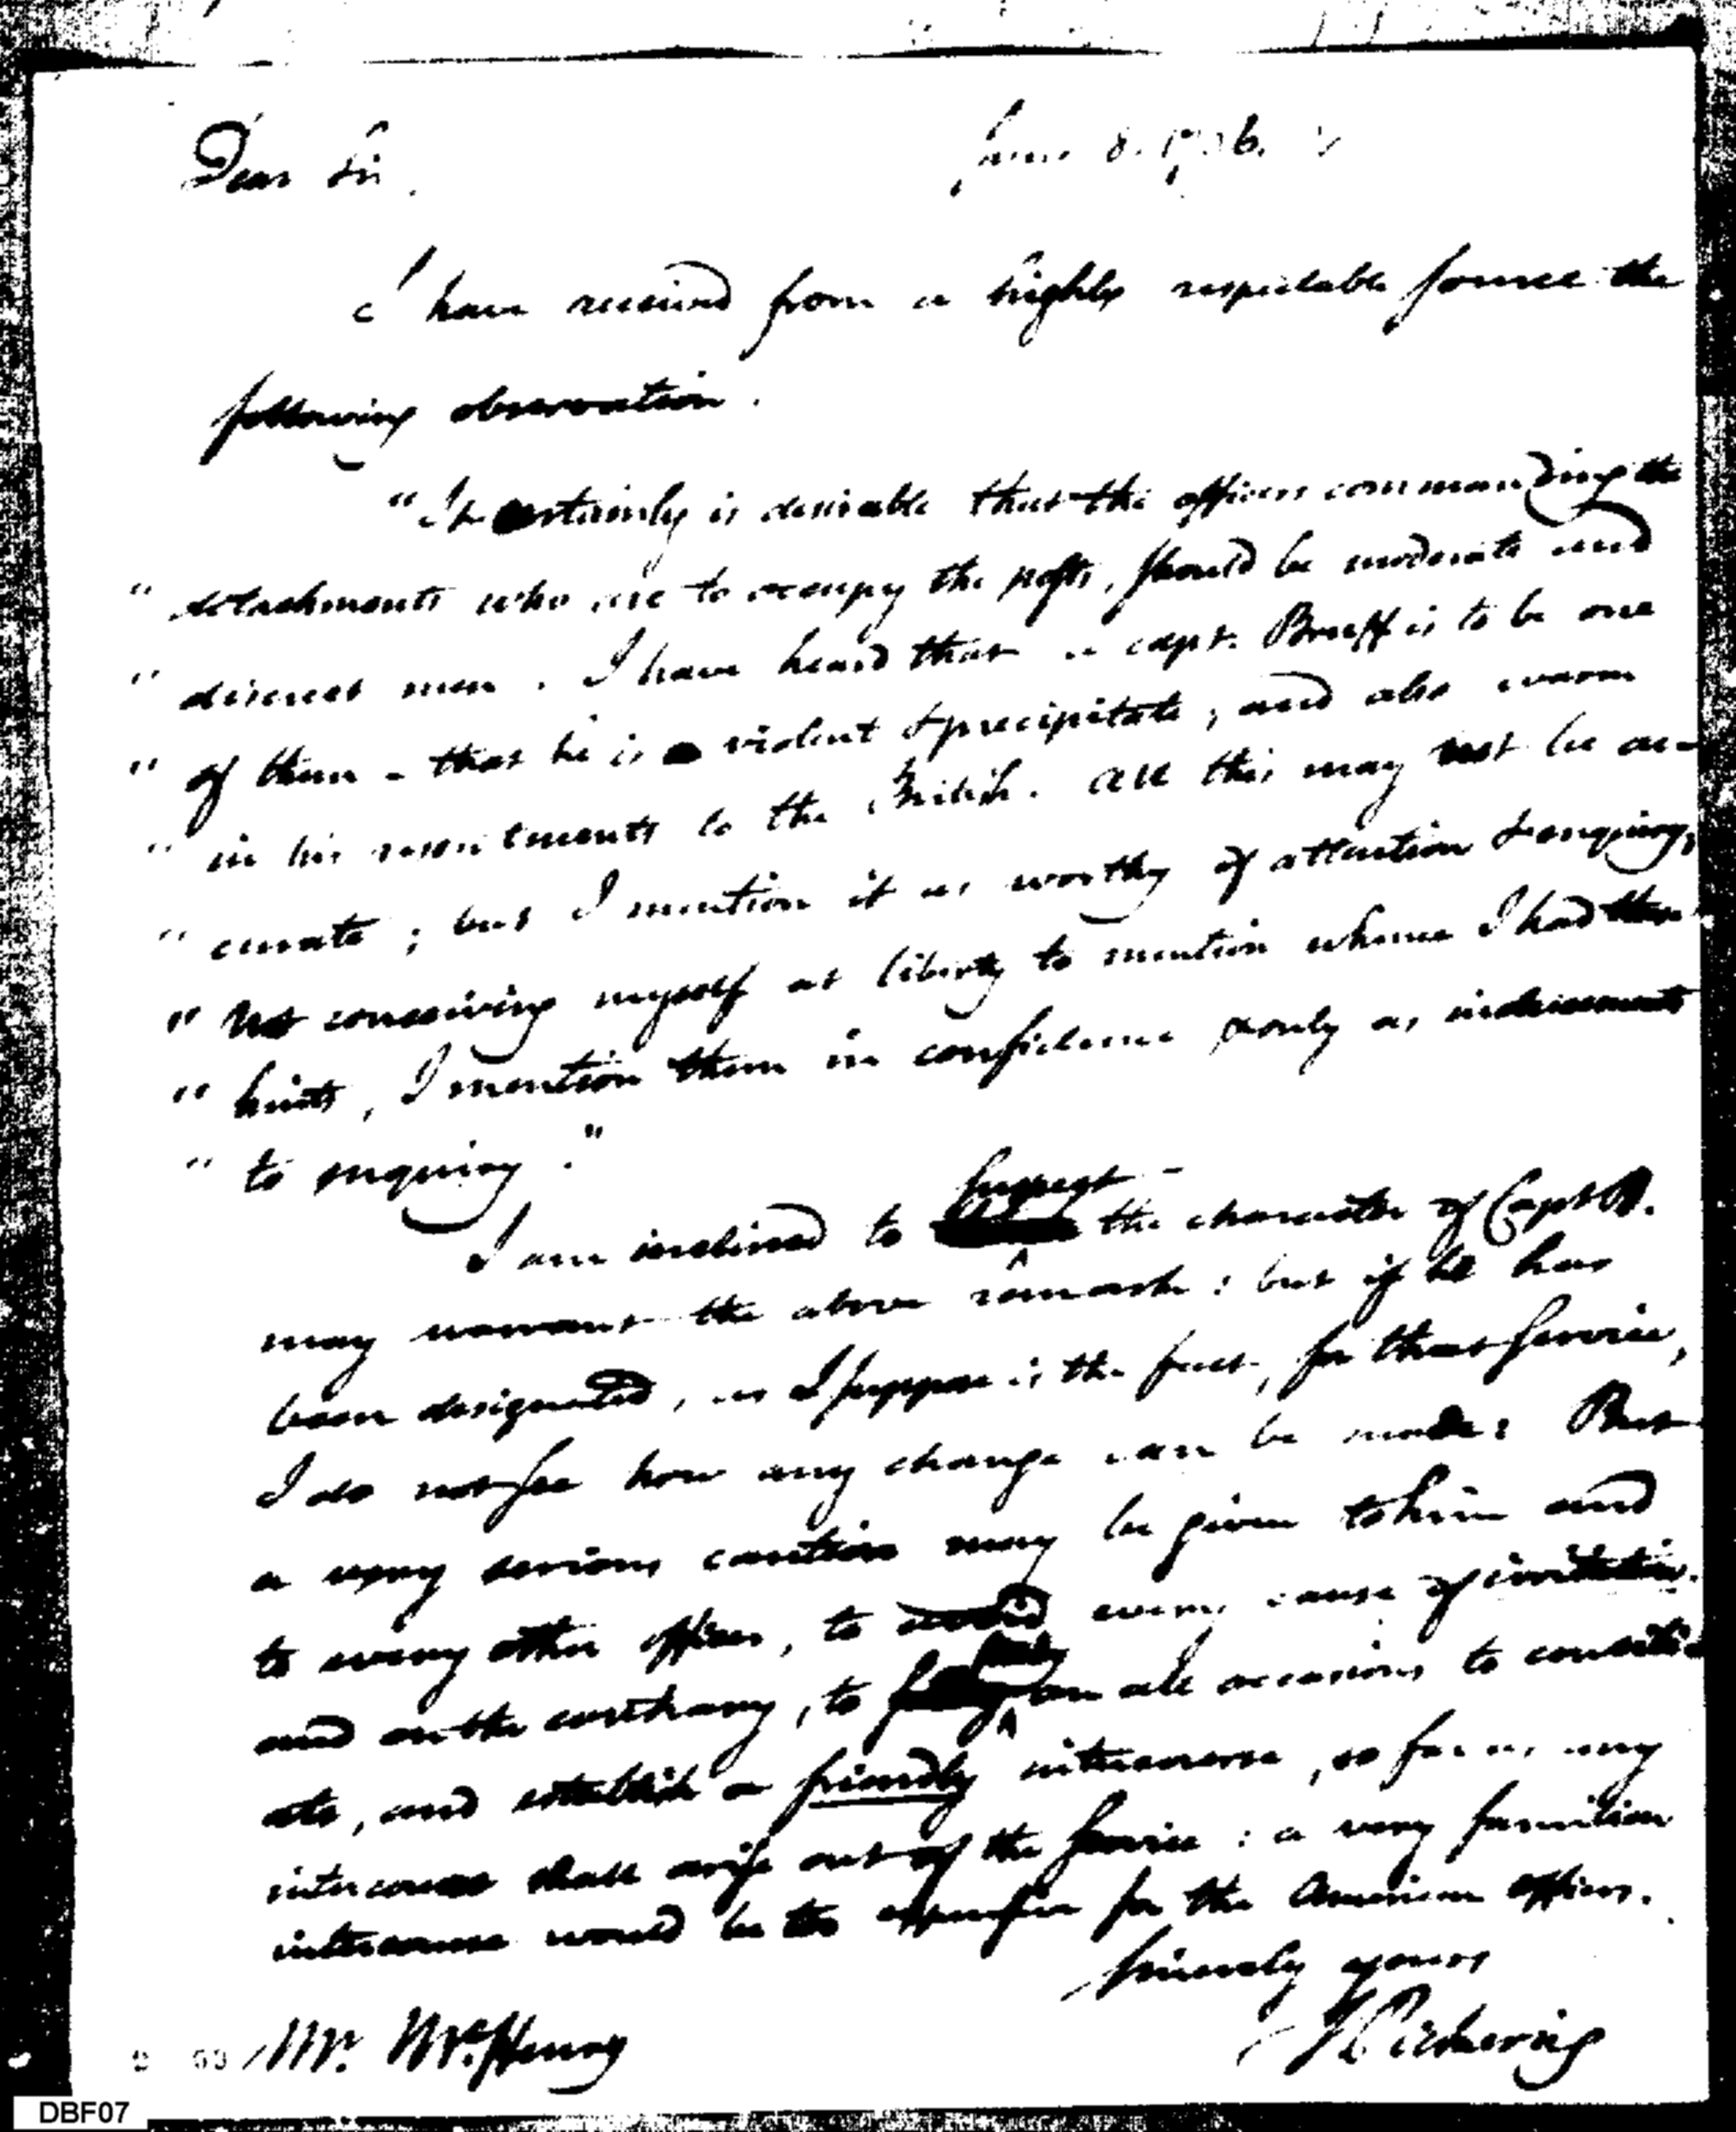 Dear Sir,
June 8. 1796.
I have received from a highly respectable source the
following observation.
"It certainly is desirable that the officers commanding the
" detachments who are to occupy the posts, should be moderate and
" discreet men. I have heard that a capt. Bruff is to be one
" of them - that he is violent & precipitate, and also warm
" in his resentments to the British. All this may not be ac-
" curate; but I mention it as worthy of attention & enquiry,
" Not conceiving myself at liberty to mention whence I had these
" hints, I mention them in confidence & only as inducements
" to enquiry."
suspect
I am inclined to the character of Capt B.
may warrant the above remark: but if he has
been designated, as I suppose is the fact, for that service,
I do not see how any change can be made: But
a very serious caution may be given to him and
to every other officer, to avoid every cause of irritation.
and on the contrary, to on all occasions to concili-
ate, and establish a friendly intercourse, so far as any
intercourse shall arise out of the service: a very familiar
intercourse would be too expensive for the American officers.
Sincerely yours
T Pickering
Mr. McHenry
DBF07